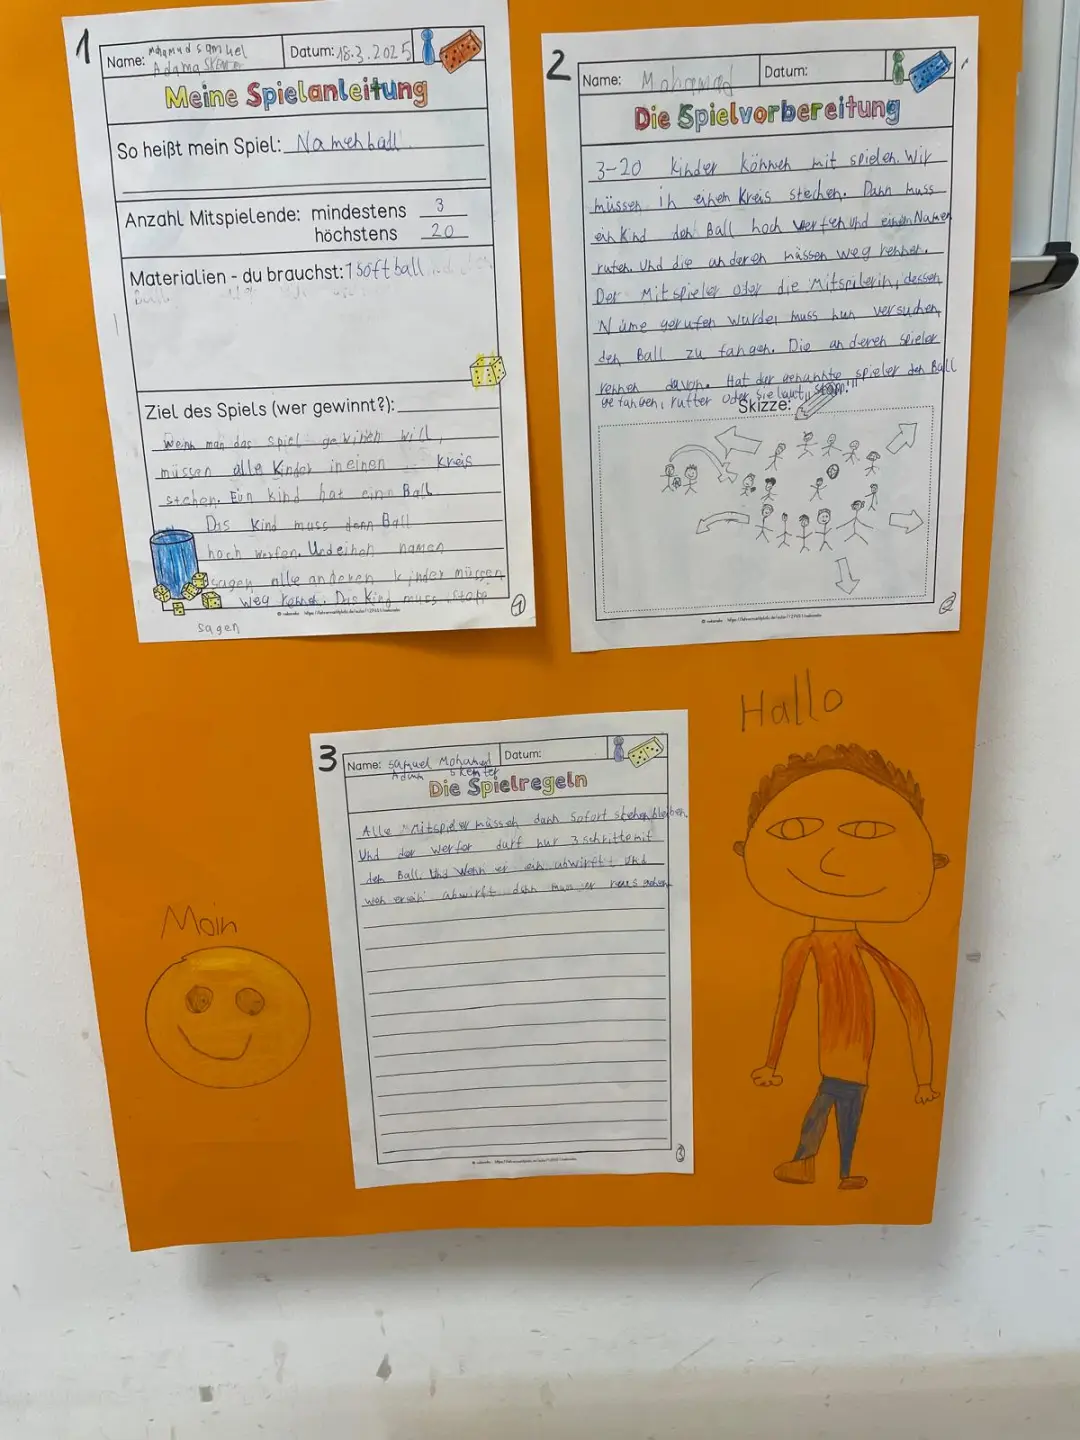 1
Name: Mohamad Samuel
Adam Skenter
Datum: 18.3.2025
Meine Spielanleitung
So heißt mein Spiel: Namenball
Anzahl Mitspielende: mindestens 3
höchstens 20
Materialien - du brauchst: 1 softball
Ziel des Spiels (wer gewinnt?):
Wenn man das spiel gewinen will,
müssen alle Kinder in einen Kreis
stehen. Ein kind hat einn Ball.
Das Kind muss denn Ball
hoch werfen. Und einen namen
sagen alle anderen kinder müssen
weg rennen. Das Kind muss stopp
sagen
1
2
Name: Mohamad
Datum:
Die Spielvorbereitung
3-20 kinder können mit spielen. Wir
müssen in einen Kreis stechen. Dann muss
ein Kind den Ball hoch werfen und einen Namen
rufen. Und die anderen müssen weg rennen.
Der Mitspieler oder die Mitspilerin, dessen
Name gerufen wurde, muss nun versuchen,
den Ball zu fangen. Die anderen spieler
rennen davon. Hat der genannte spieler den Ball
gefangen, rufter oder sie laut "stopp!"
Skizze:
2
3
Name: Samuel Mohamed
Adam Skenter
Datum:
Die Spielregeln
Alle Mitspieler müssen dann Sofort stehen bleiben.
Und der werfer darf nur 3 schritte mit
den Ball. Und Wenn er ein abwirft und
wen er abwirft dann muss er
3
Hallo
Moin